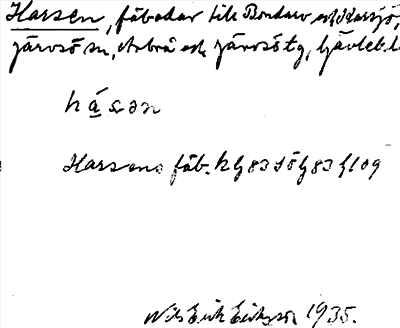 Harsen, fäbodar till Bondarv och Karsjö,
Järvsö sn, Arbrå och Järvsö tg, Gävleb. l
hásən
Harsens fäb.
Nils Erik Eriksson 1935.